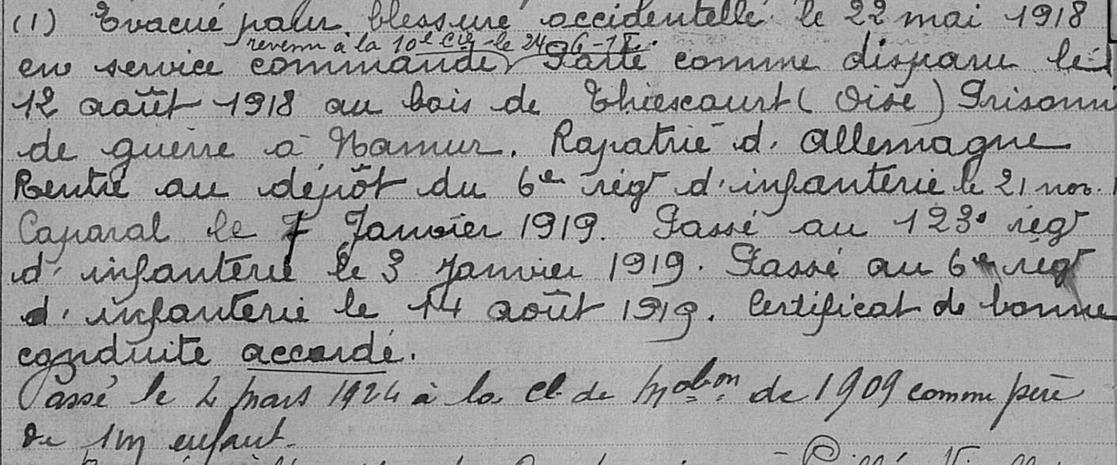 (1) Evacué pour blessure accidentelle le 22 mai 1918
revenu à la 10e Cie le 24-6-18.
en service commandé, Porté comme disparu le
12 août 1918 au bois de Thiescourt (Oise) Prisonn
de guerre à Namur. Rapatrié d'Allemagne
Rentré au dépôt du 6e régt d'infanterie le 21 nov.
Caporal le 7 Janvier 1919. Passé au 123e régt
d'infanterie le 3 Janvier 1919. Passé au 6e régt
d'infanterie le 14 août 1919. Certificat de bonne
conduite accordé.
Passé le 2 mars 1924 à la cl. de mobon de 1909 comme père
de 1 enfant.